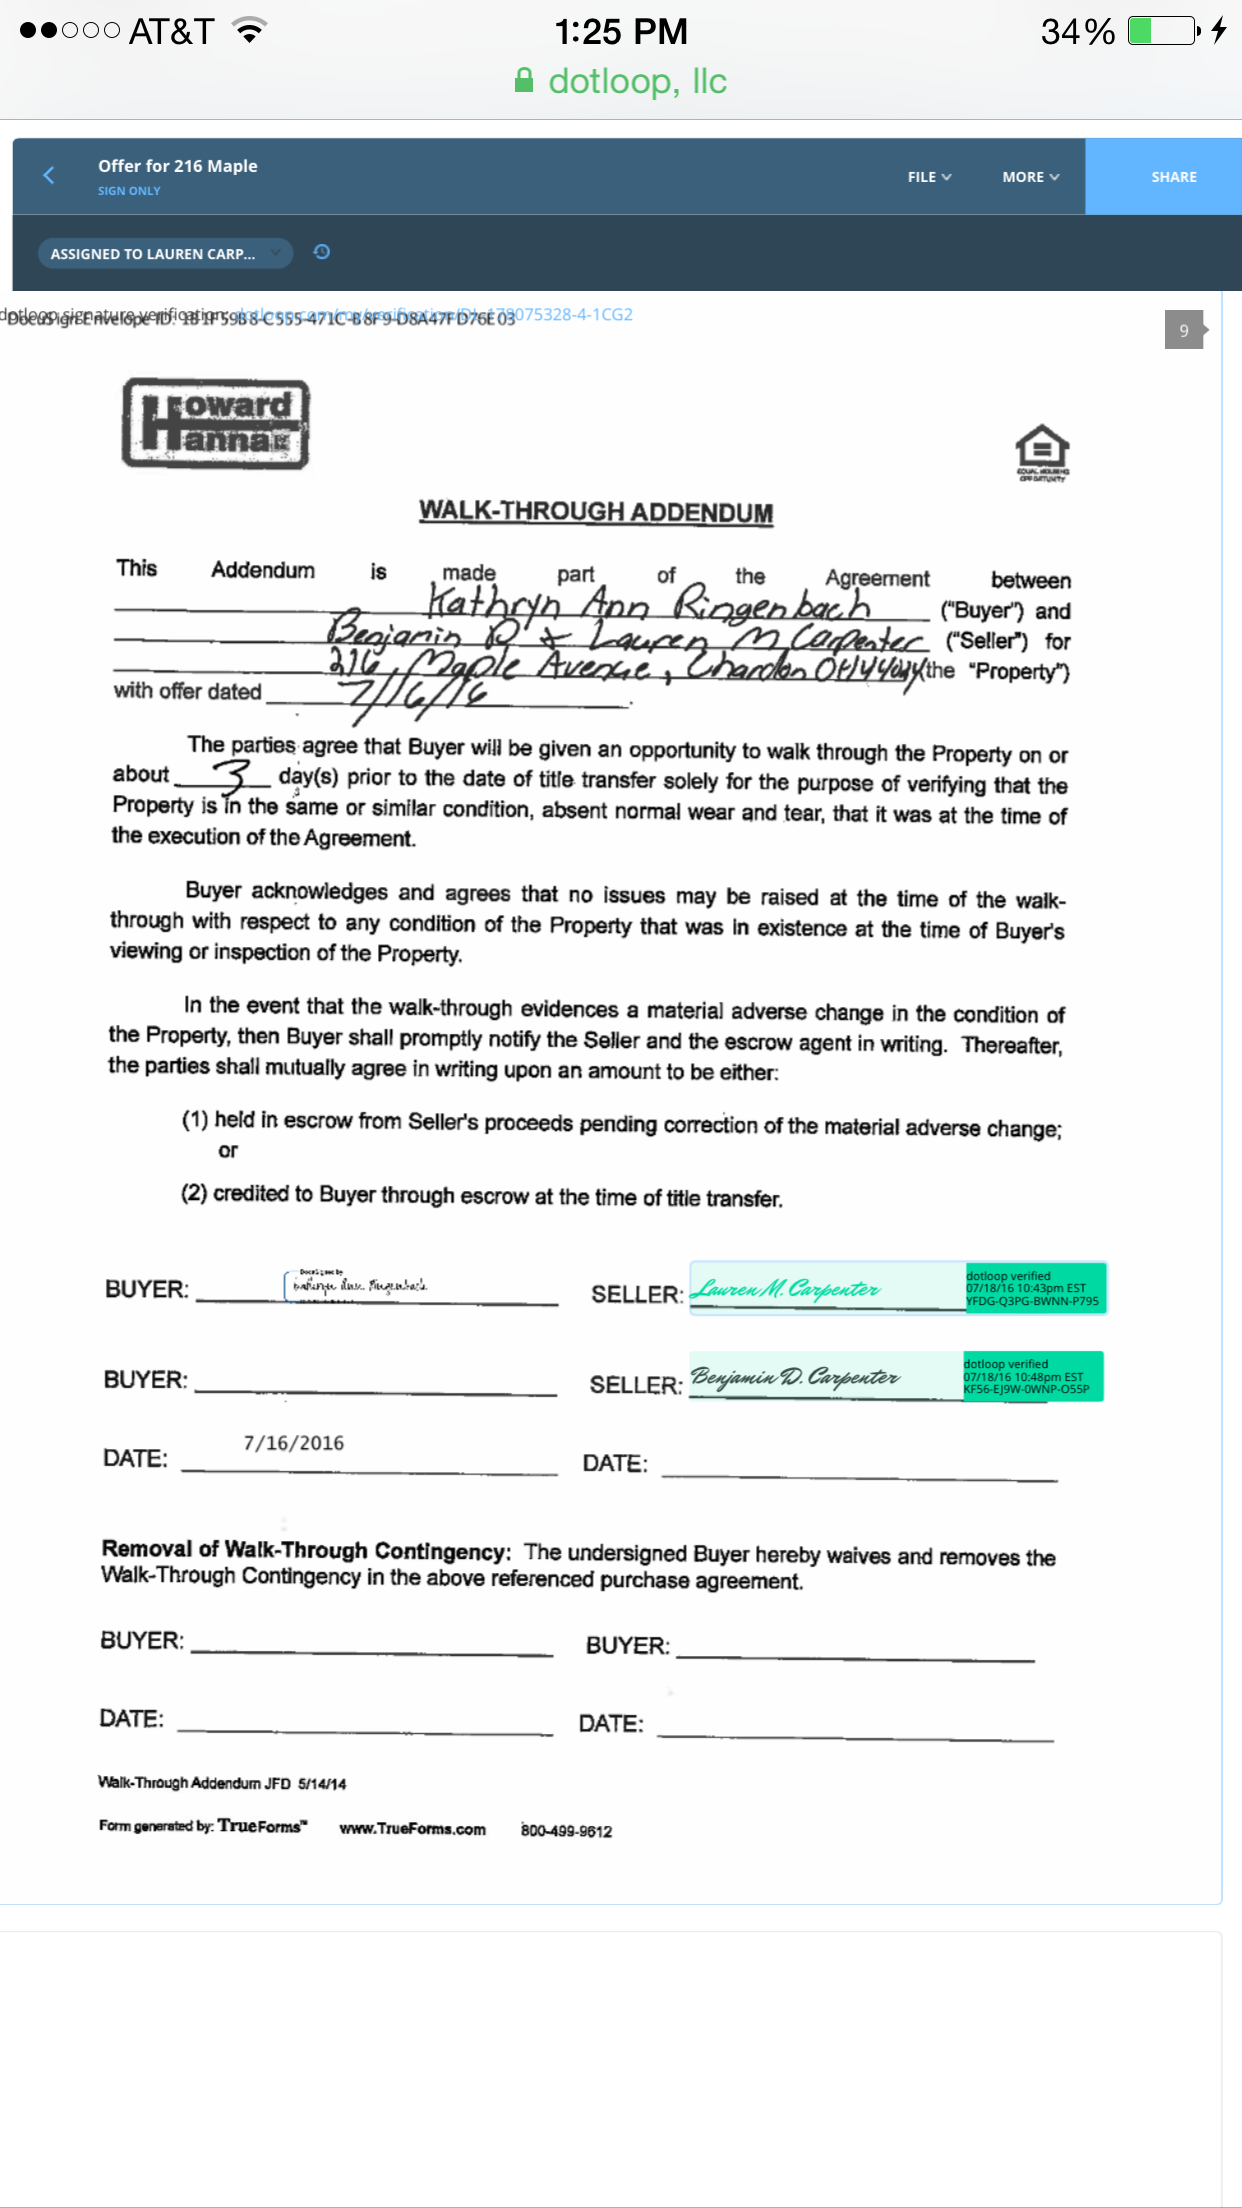 AT&T 1:25 PM 34%
dotloop, llc
Offer for 216 Maple
SIGN ONLY
FILE MORE SHARE
ASSIGNED TO LAUREN CARP...
dotloop signature verification: dotloop.com/my/verification/DL-178075328-4-1CG2
DocuSign Envelope ID: 1B1F59B8-C555-471C-B8F9-D8A47FD76E03
9
Howard
Hanna
EQUAL HOUSING
OPPORTUNITY
WALK-THROUGH ADDENDUM
This Addendum is made part of the Agreement between
Kathryn Ann Ringenbach ("Buyer") and
Benjamin D & Lauren M Carpenter ("Seller") for
216 Maple Avenue, Chardon OH 44024 (the "Property")
with offer dated 7/16/16.
The parties agree that Buyer will be given an opportunity to walk through the Property on or
about 3 day(s) prior to the date of title transfer solely for the purpose of verifying that the
Property is in the same or similar condition, absent normal wear and tear, that it was at the time of
the execution of the Agreement.
Buyer acknowledges and agrees that no issues may be raised at the time of the walk-
through with respect to any condition of the Property that was in existence at the time of Buyer's
viewing or inspection of the Property.
In the event that the walk-through evidences a material adverse change in the condition of
the Property, then Buyer shall promptly notify the Seller and the escrow agent in writing. Thereafter,
the parties shall mutually agree in writing upon an amount to be either:
(1) held in escrow from Seller's proceeds pending correction of the material adverse change;
or
(2) credited to Buyer through escrow at the time of title transfer.
DocuSigned by
BUYER: Kathryn Ann Ringenbach SELLER: Lauren M. Carpenter
dotloop verified
07/18/16 10:43pm EST
YFDG-Q3PG-BWNN-P795
BUYER: SELLER: Benjamin D. Carpenter
dotloop verified
07/18/16 10:48pm EST
KF56-EJ9W-0WNP-O55P
DATE: 7/16/2016 DATE:
Removal of Walk-Through Contingency: The undersigned Buyer hereby waives and removes the
Walk-Through Contingency in the above referenced purchase agreement.
BUYER: BUYER:
DATE: DATE:
Walk-Through Addendum JFD 5/14/14
Form generated by: TrueForms™ www.TrueForms.com 800-499-9612